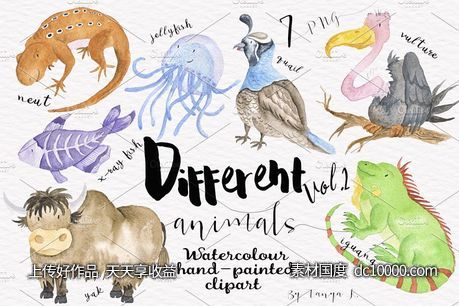 neut
jellyfish
7
PNG
quail
vulture
x-ray fish
Different
vol.2
animals
iguana
Watercolour
hand-painted
clipart
yak
上传好作品,天天享收益
素材国度 dc10000.com
By Tanya K.